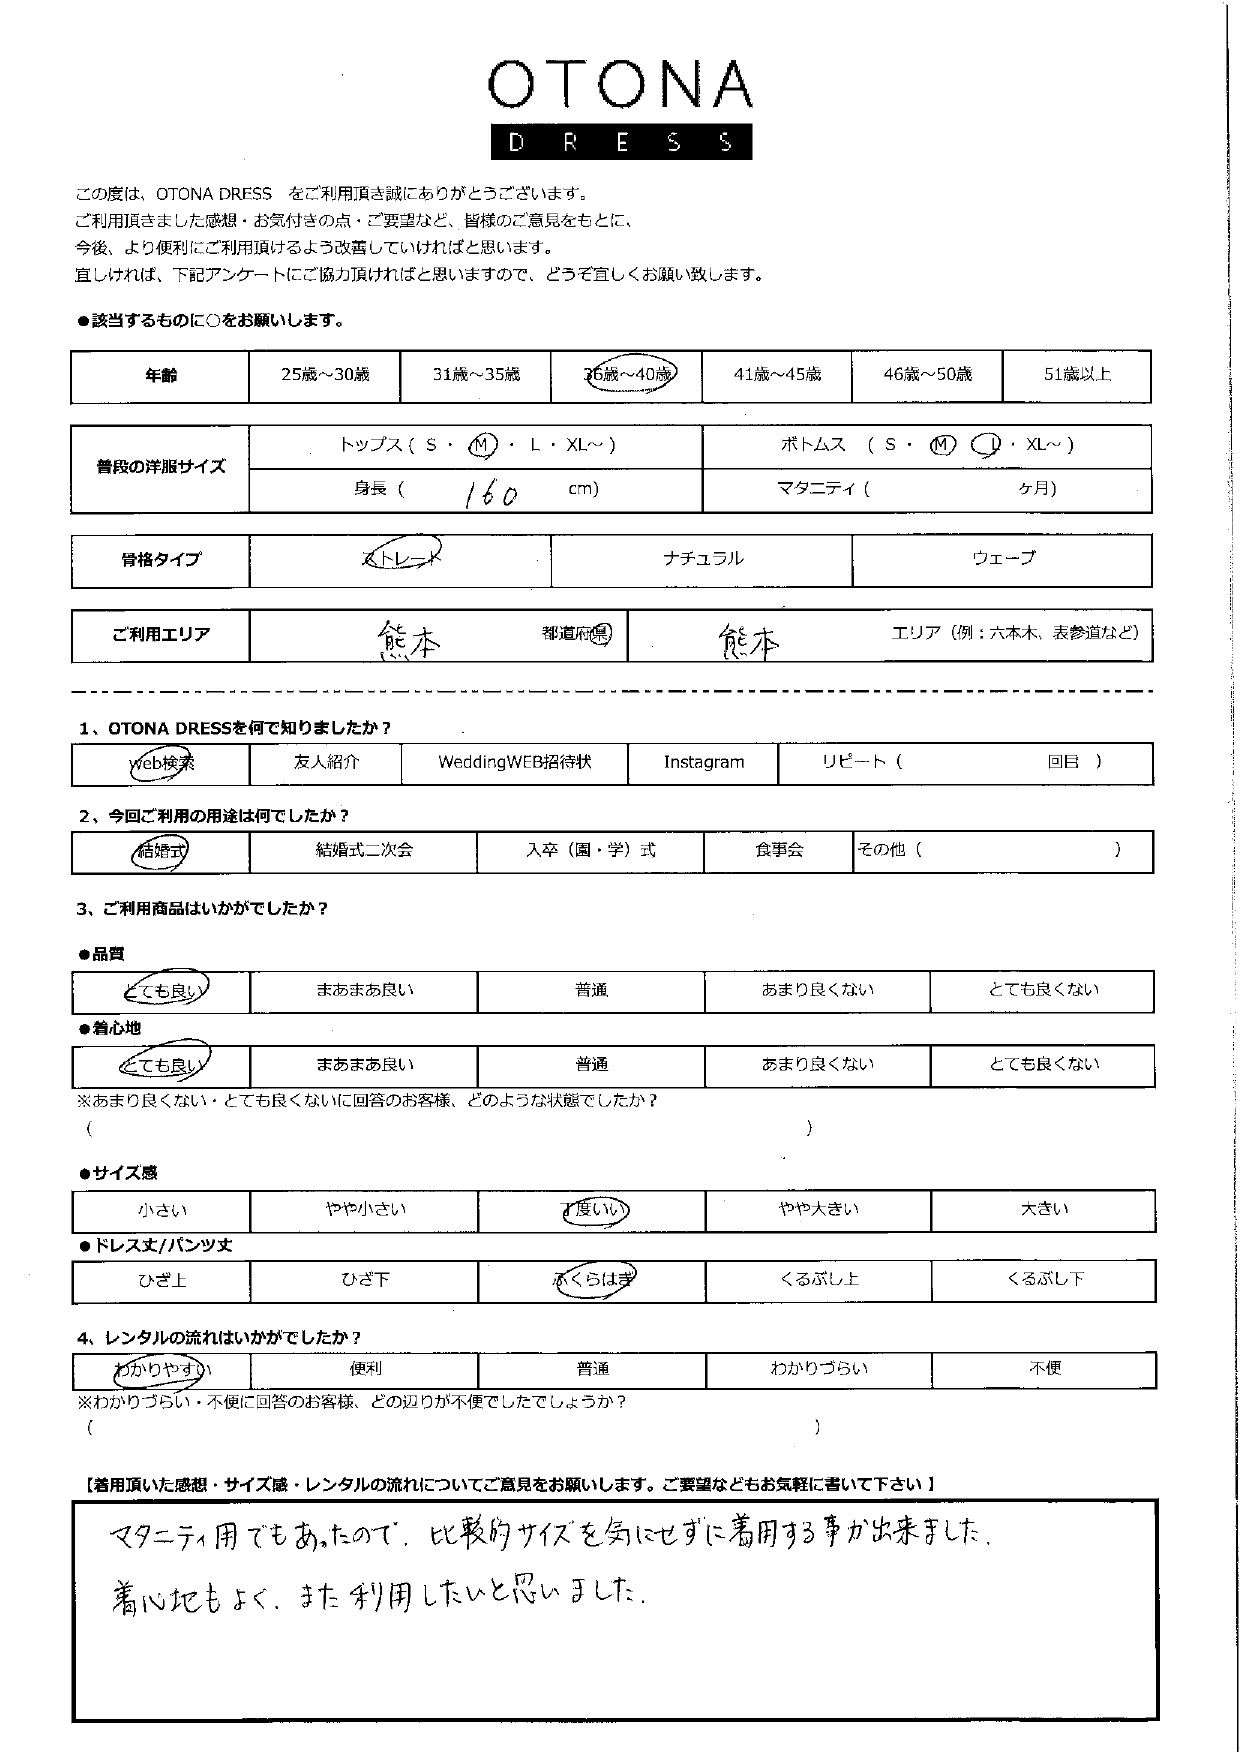 OTONA
DRESS
この度は、OTONA DRESS をご利用頂き誠にありがとうございます。
ご利用頂きました感想・お気付きの点・ご要望など、皆様のご意見をもとに、
今後、より便利にご利用頂けるよう改善していければと思います。
宜しければ、下記アンケートにご協力頂ければと思いますので、どうぞ宜しくお願い致します。
●該当するものに○をお願いします。
年齢 25歳～30歳 31歳～35歳 36歳～40歳 41歳～45歳 46歳～50歳 51歳以上
普段の洋服サイズ
トップス ( S ・ M ・ L ・ XL～ ) ボトムス ( S ・ M L ・ XL～ )
身長 ( 160 cm) マタニティ ( ヶ月)
骨格タイプ ストレート ナチュラル ウェーブ
ご利用エリア 熊本 都道府県 熊本 エリア（例：六本木、表参道など）
1、OTONA DRESSを何で知りましたか？
web検索 友人紹介 WeddingWEB招待状 Instagram リピート ( 回目 )
2、今回ご利用の用途は何でしたか？
結婚式 結婚式二次会 入卒（園・学）式 食事会 その他 ( )
3、ご利用商品はいかがでしたか？
●品質
とても良い まあまあ良い 普通 あまり良くない とても良くない
●着心地
とても良い まあまあ良い 普通 あまり良くない とても良くない
※あまり良くない・とても良くないに回答のお客様、どのような状態でしたか？
( )
●サイズ感
小さい やや小さい 丁度いい やや大きい 大きい
●ドレス丈/パンツ丈
ひざ上 ひざ下 ふくらはぎ くるぶし上 くるぶし下
4、レンタルの流れはいかがでしたか？
わかりやすい 便利 普通 わかりづらい 不便
※わかりづらい・不便に回答のお客様、どの辺りが不便でしたでしょうか？
( )
【着用頂いた感想・サイズ感・レンタルの流れについてご意見をお願いします。ご要望などもお気軽に書いて下さい 】
マタニティ用でもあったので、比較的サイズを気にせずに着用する事が出来ました。
着心地もよく、また利用したいと思いました。